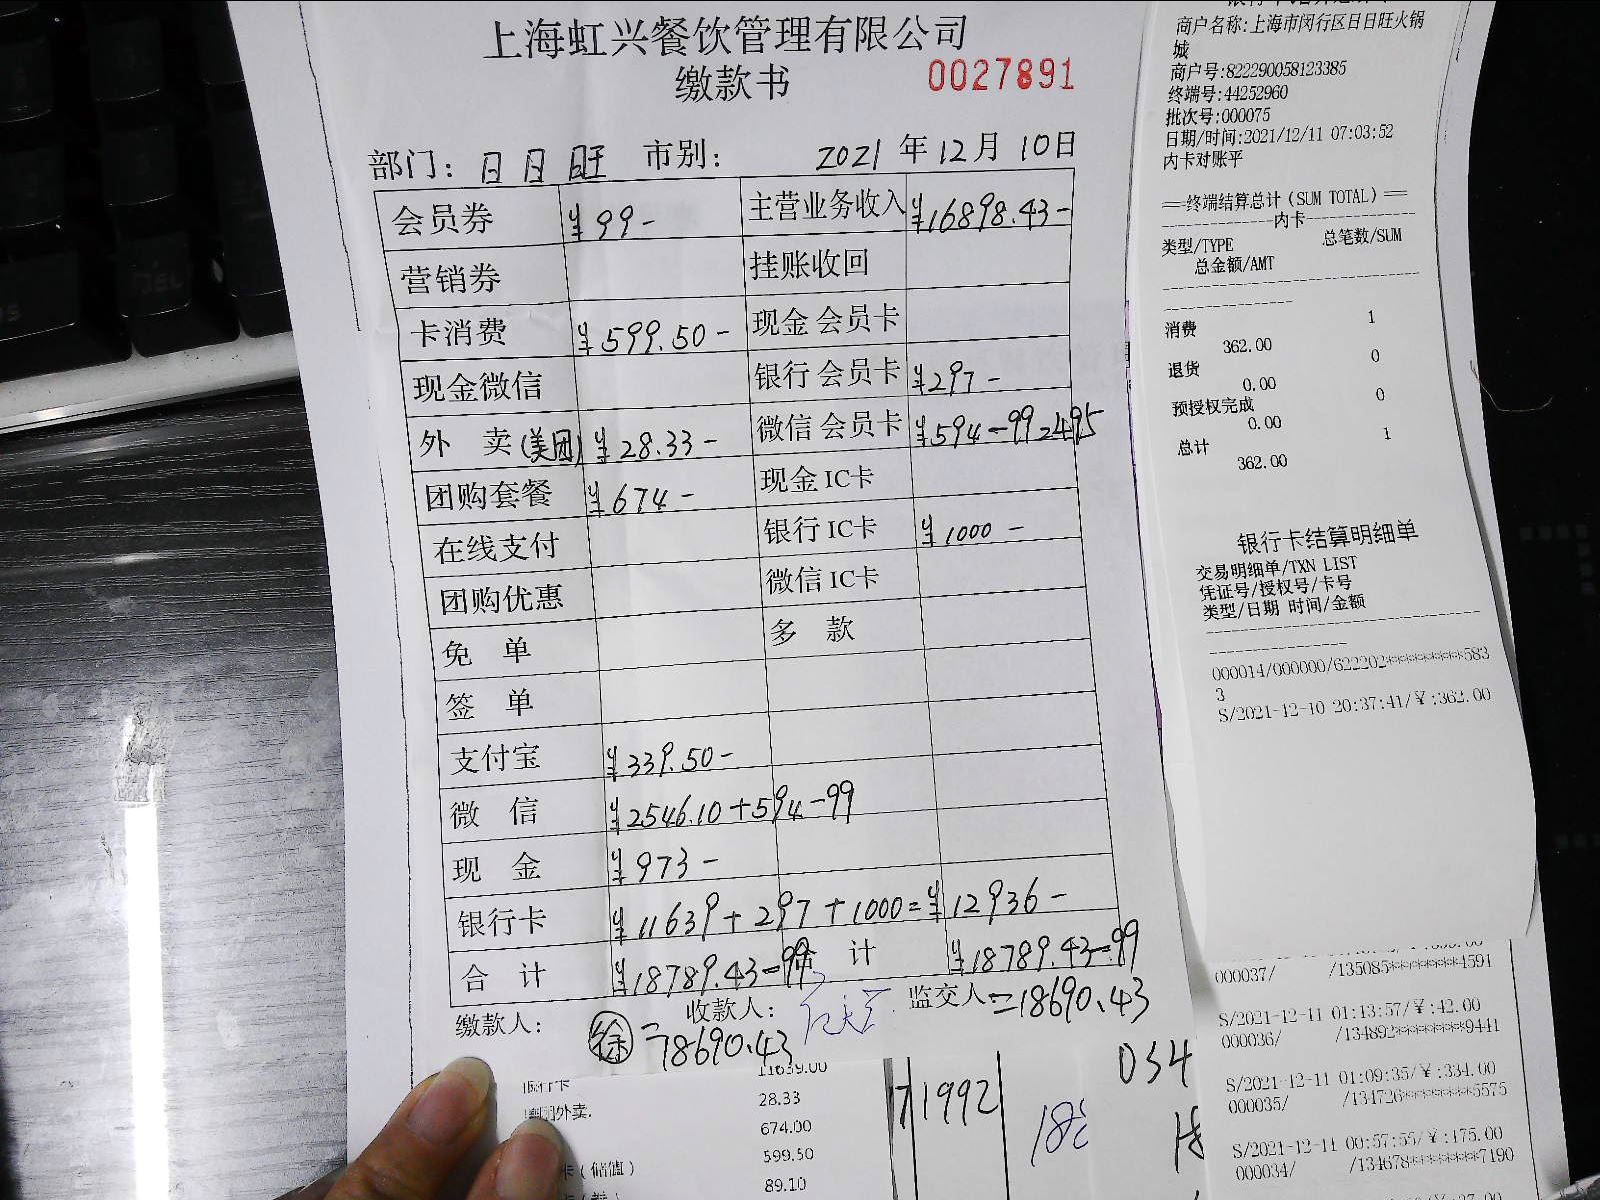 上海虹兴餐饮管理有限公司
缴款书 0027891
部门：日日旺 市别： 2021年12月10日
会员券 ¥99- 主营业务收入 ¥16898.43-
营销券 挂账收回
卡消费 ¥599.50- 现金会员卡
现金微信 银行会员卡 ¥297-
外 卖(美团) ¥28.33- 微信会员卡 ¥594-99=495
团购套餐 ¥674- 现金IC卡
在线支付 银行IC卡 ¥1000-
团购优惠 微信IC卡
免 单 多 款
签 单
支付宝 ¥339.50-
微 信 ¥2546.10+594-99
现 金 ¥973-
银行卡 ¥11639+297+1000=¥12936-
合 计 ¥18789.43-99 合 计 ¥18789.43-99
缴款人： 徐 =18690.43 收款人： 监交人： =18690.43
商户名称:上海市闵行区日日旺火锅
城
商户号:822290058123385
终端号:44252960
批次号:000075
日期/时间:2021/12/11 07:03:52
内卡对账平
==终端结算总计(SUM TOTAL)===
内卡
类型/TYPE 总笔数/SUM
总金额/AMT
消费 1
362.00
退货 0
0.00
预授权完成 0
0.00
总计 1
362.00
银行卡结算明细单
交易明细单/TXN LIST
凭证号/授权号/卡号
类型/日期 时间/金额
000014/000000/622202*********583
3
S/2021-12-10 20:37:41/¥:362.00
000037/ /135085********4591
S/2021-12-11 01:13:57/¥:42.00
000036/ /134892********9441
S/2021-12-11 01:09:35/¥:334.00
000035/ /134726********5575
S/2021-12-11 00:57:55/¥:175.00
000034/ /134678********7190
银行卡 11639.00
外卖. 28.33
674.00
卡(储值) 599.50
89.10
1992
034